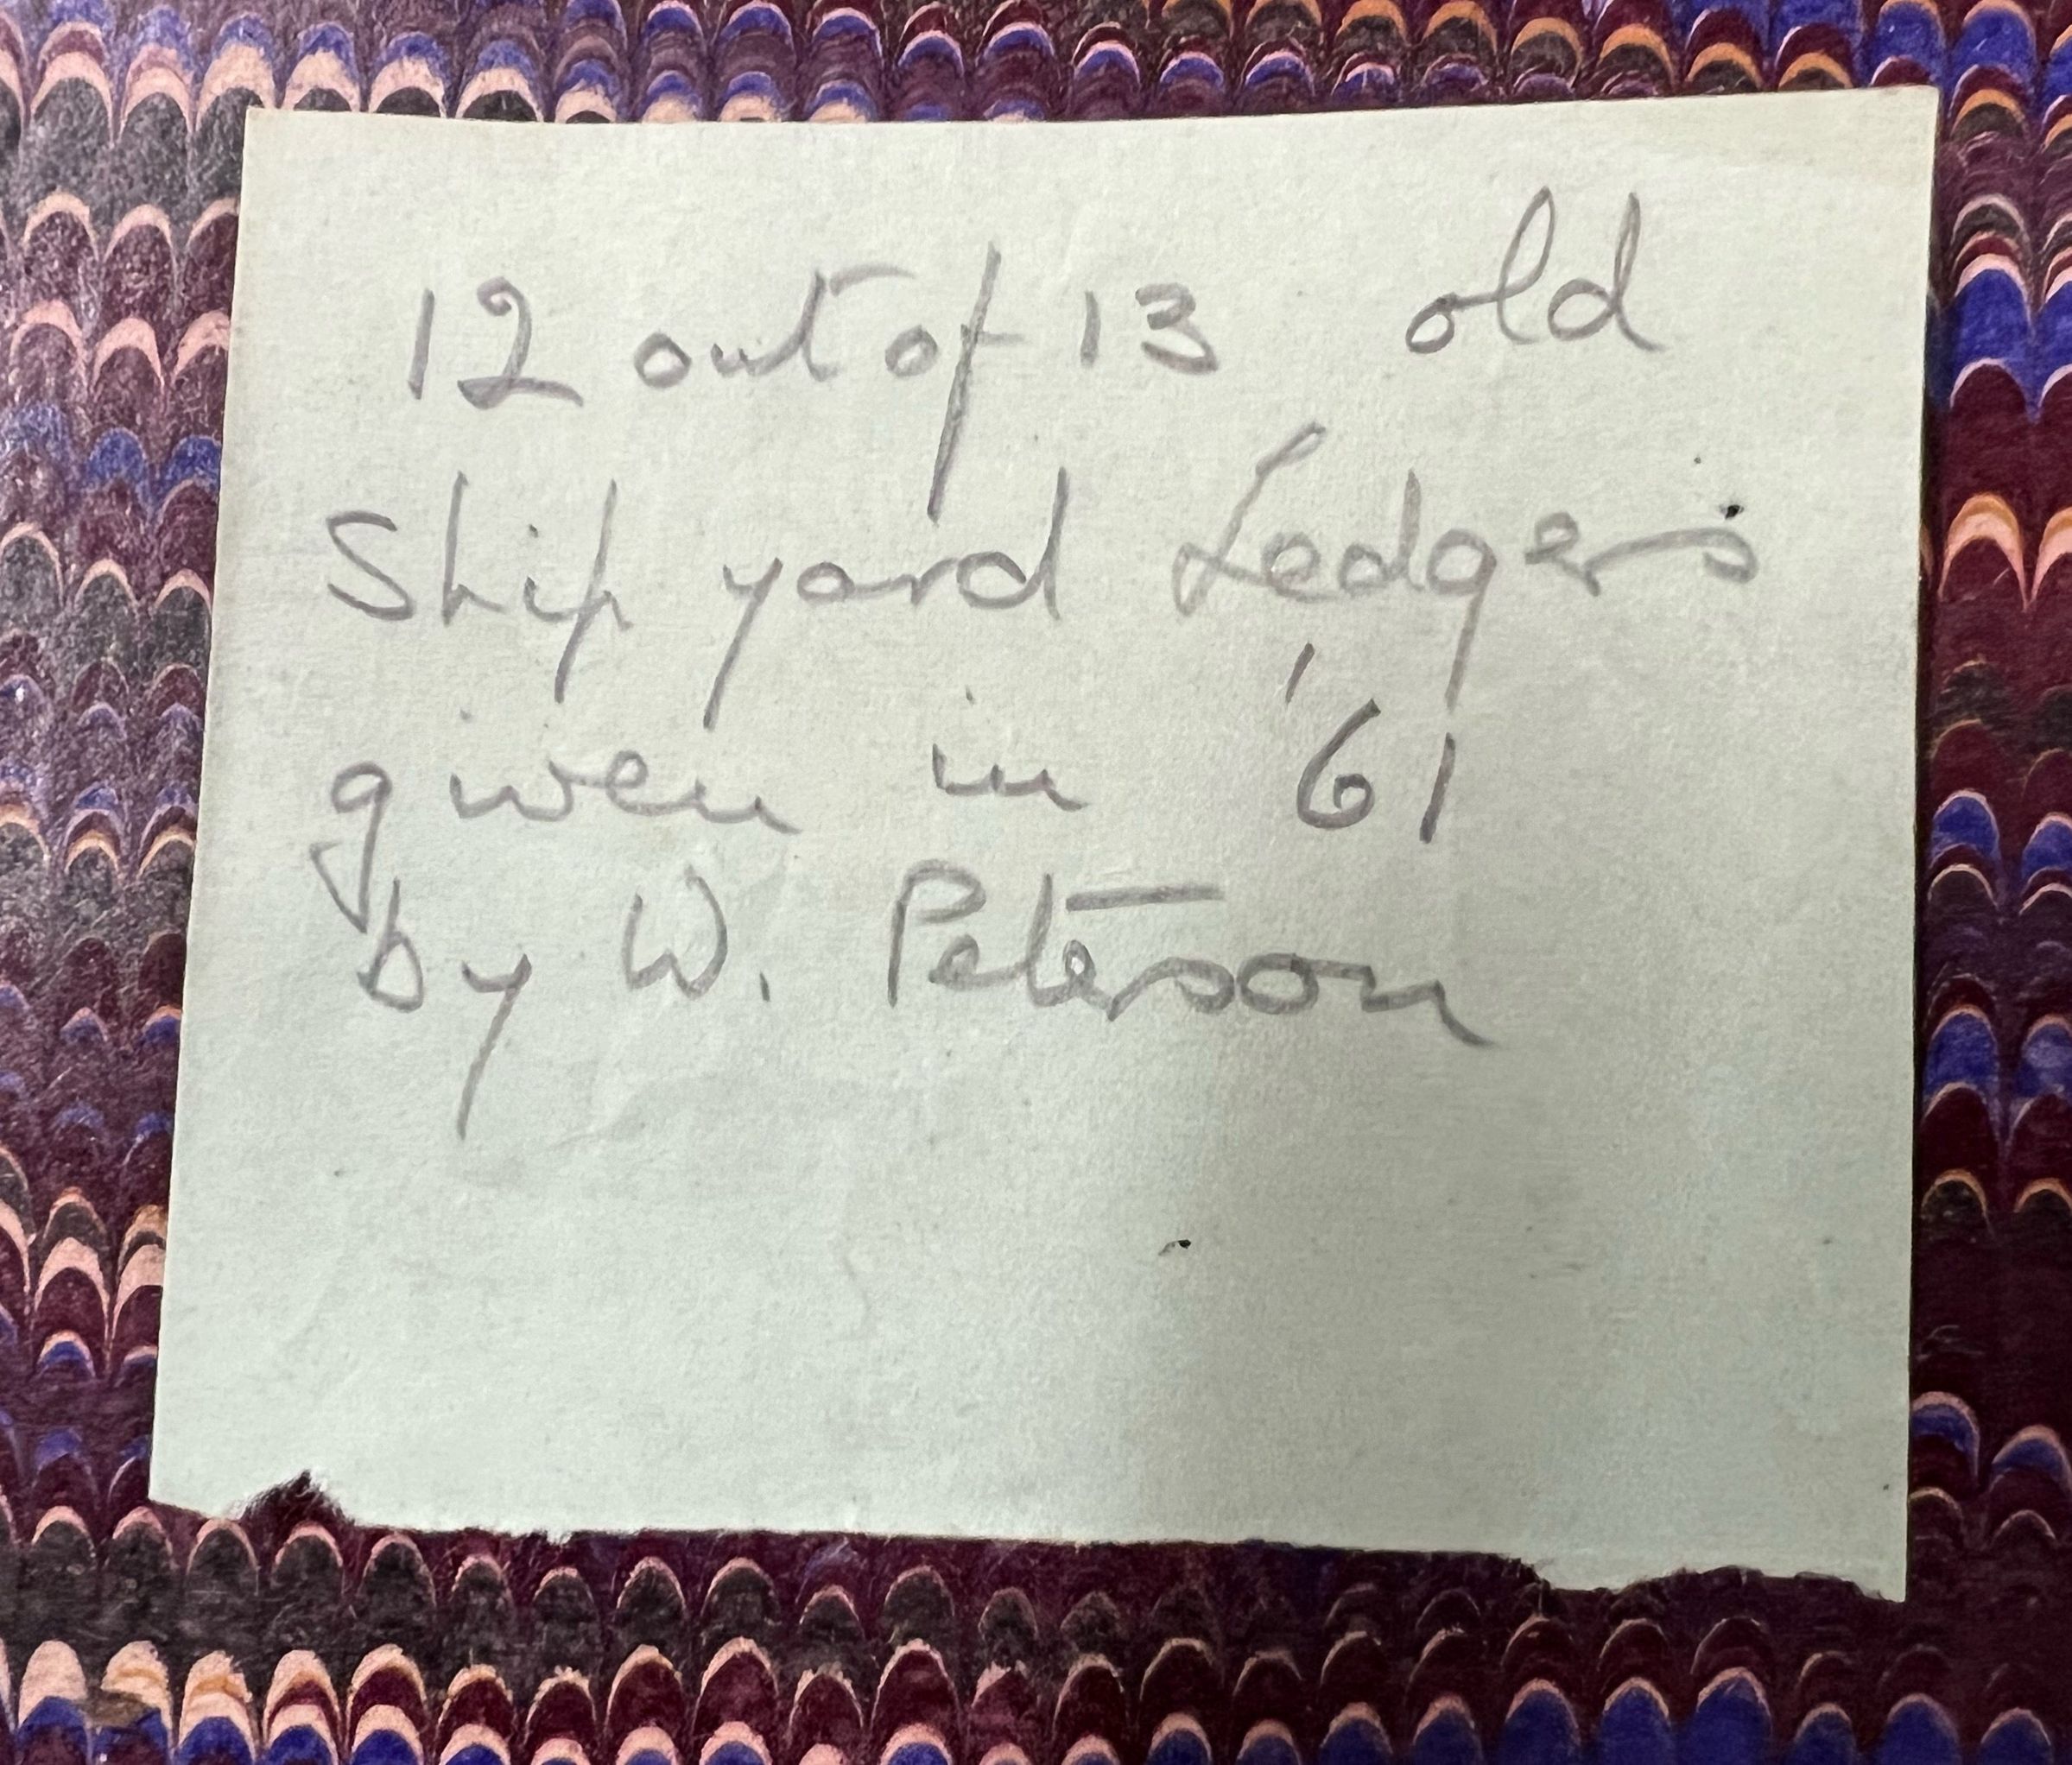 12 out of 13 old
Ship yard Ledgers
given in '61
by W. Peterson